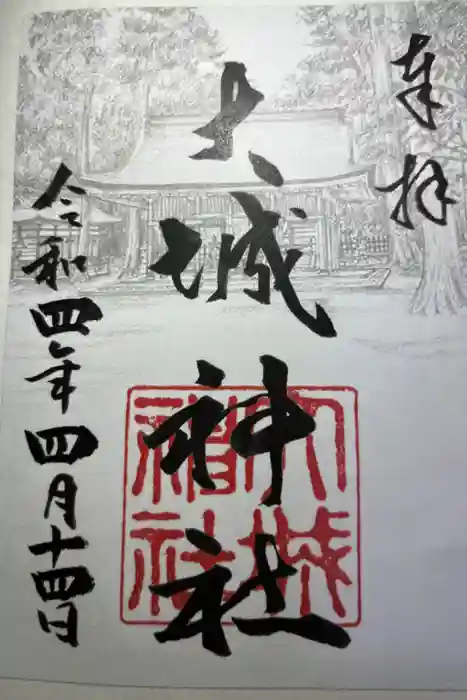 奉拝
大城神社
令和四年四月十四日
大城
神社